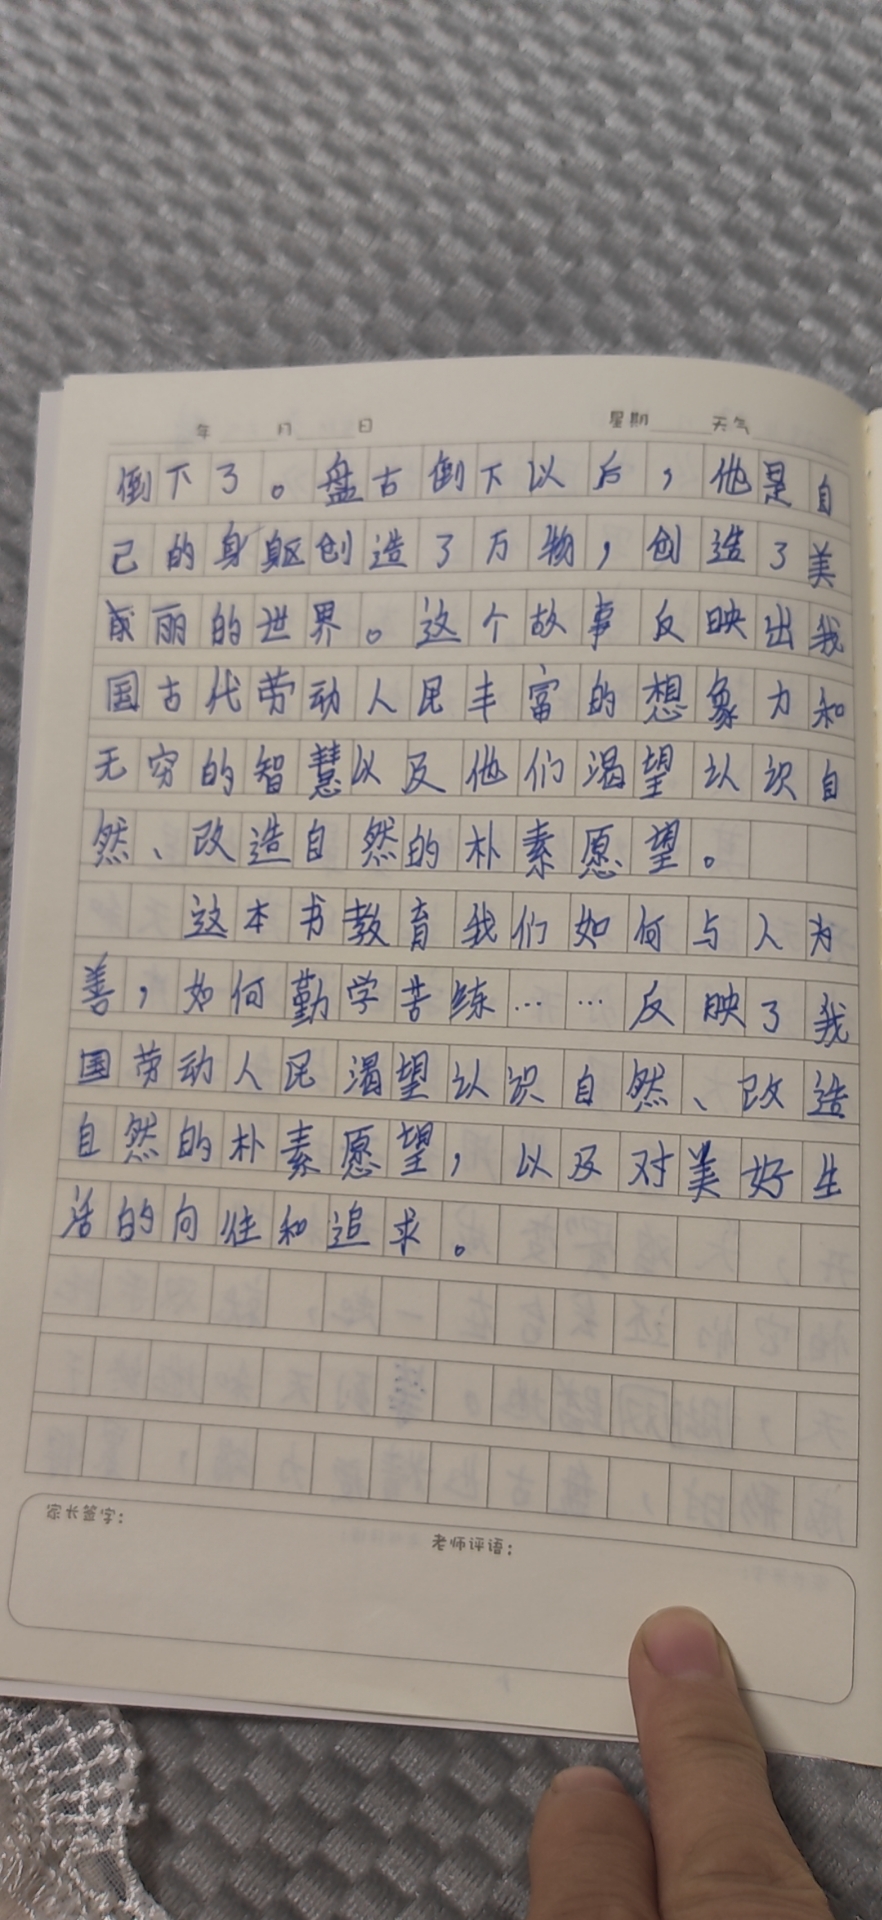 年 月 日 星期 天气
倒下了。盘古倒下以后，他是自
己的身躯创造了万物，创造了美
丽的世界。这个故事反映出我
国古代劳动人民丰富的想象力和
无穷的智慧以及他们渴望认识自
然、改造自然的朴素愿望。
这本书教育我们如何与人为
善，如何勤学苦练……反映了我
国劳动人民渴望认识自然、改造
自然的朴素愿望，以及对美好生
活的向往和追求。
家长签字：
老师评语：